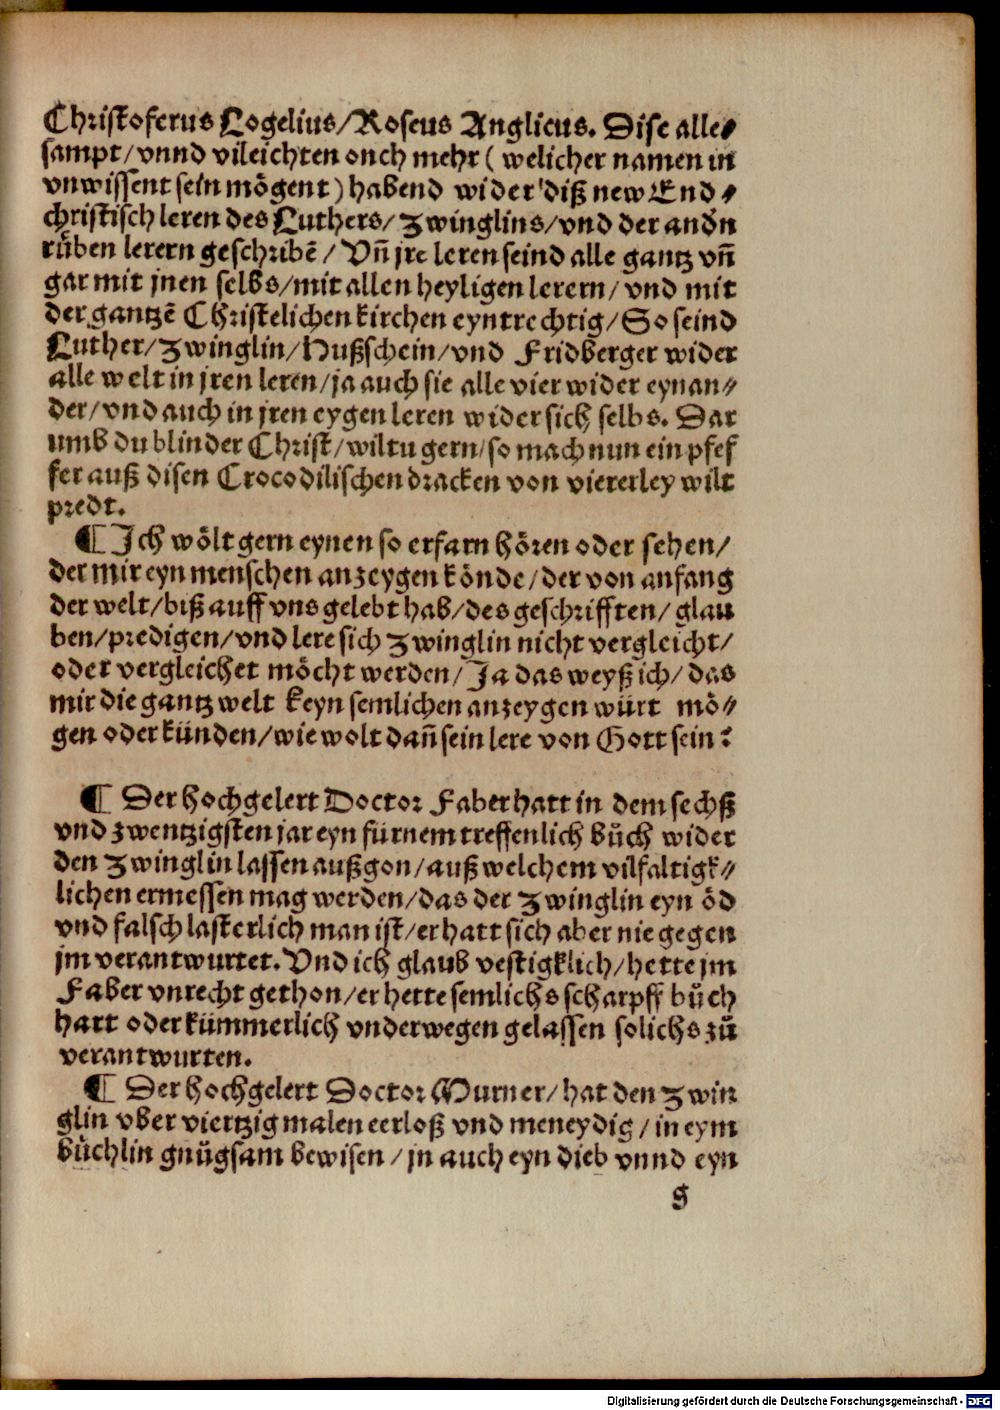 Christoferus Logelius/Roseus Anglicus. Dise alle⸗
sampt/vnnd vileichten onch mehr ( welicher namen in
vnwissent sein mögent) habend wider diß new End⸗
christisch leren des Luthers/ Zwinglins/vnd der andn̄
růben lerern geschribē / Vñ jre leren seind alle gantz vñ
gar mit jnen selbs/mit allen heyligen lerern/ vnd mit
der gantzē Christelichen kirchen eyntrechtig/ So seind
Luther/ Zwinglin/Hußschein/vnd Fridberger wider
alle welt in jren leren/ja auch sie alle vier wider eynan⸗
der/vnd auch in jren eygen leren wider sich selbs. Dar
umb du blinder Christ/wiltu gern/so mach nun ein pfef
fer auß disen Crocodilischen dracken von viererley wilt
predt.
¶ Ich wölt gern eynen so erfarn hören oder sehen/
der mir eyn menschen anzeygen könde/der von anfang
der welt/biß auff vns gelebt hab/des geschrifften/ glau
ben/predigen/vnd lere sich Zwinglin nicht vergleicht/
oder vergleichet möcht werden/ Ja das weyß ich/ das
mir die gantz welt keyn semlichen anzeygen würt mö⸗
gen oder künden/wie wolt dañ sein lere von Gott sein?
¶ Der hochgelert Doctor Faber hatt in dem sechß
vnd zwentzigsten jar eyn fürnem treffenlich bůch wider
den Zwinglin lassen außgon/auß welchem vilfaltigk⸗
lichen ermessen mag werden/das der Zwinglin eyn öd
vnd falsch lasterlich man ist/er hatt sich aber nie gegen
jm verantwurtet. Vnd ich glaub vestigklich/hette jm
Faber vnrecht gethon/er hette semlichs scharpff bůch
hart oder kümmerlich vnderwegen gelassen solichs zů
verantwurten.
¶ Der hochgelert Doctor Murner/hat den Zwin
glin vber viertzig malen eerloß vnd meneydig / in eym
bůchlin gnůgsam bewisen / jn auch eyn dieb vnnd eyn
g
Digitalisierung gefördert durch die Deutsche Forschungsgemeinschaft - DFG